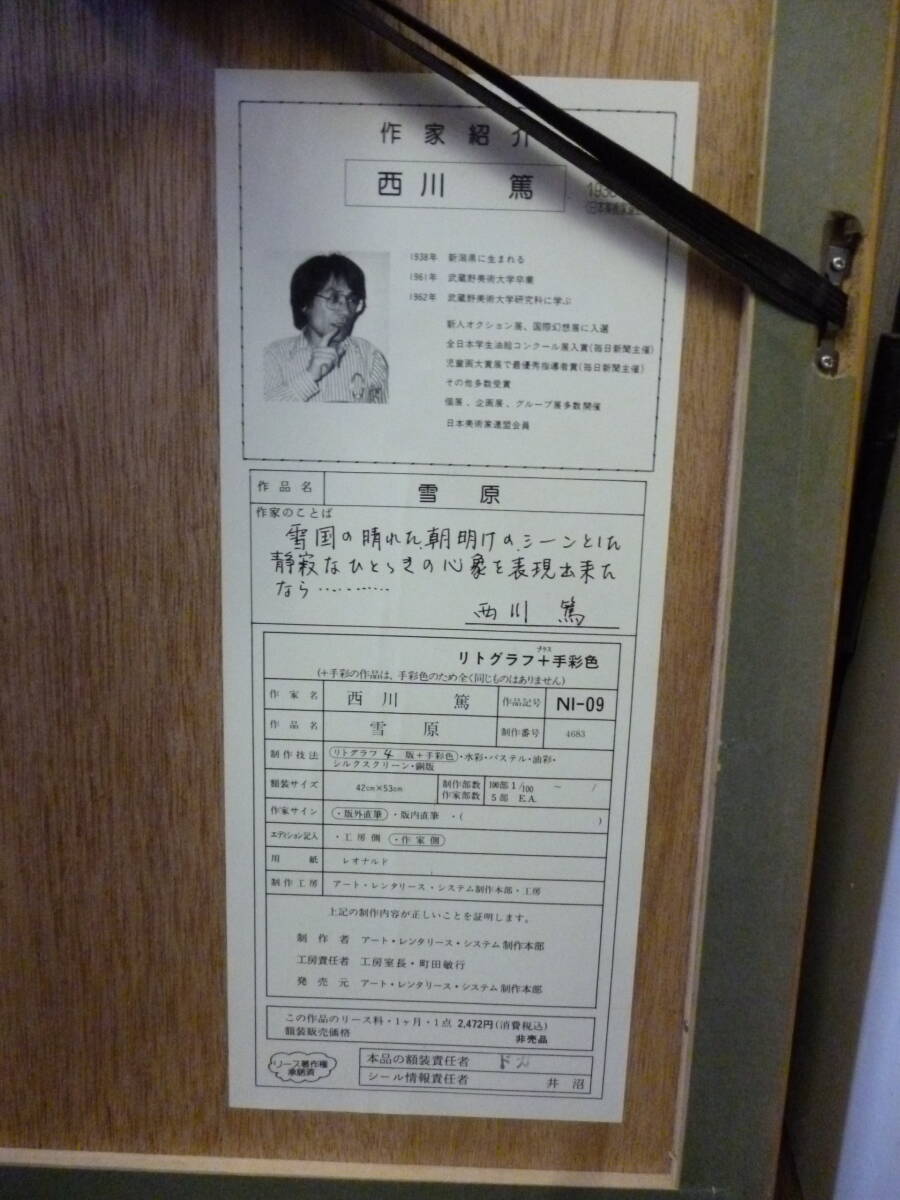 作家紹介
西川 篤
1938年 新潟県に生まれる
1961年 武蔵野美術大学卒業
1962年 武蔵野美術大学研究科に学ぶ
新人オクション展、国際幻想展に入選
全日本学生油絵コンクール展入賞(毎日新聞主催)
児童画大賞展で最優秀指導者賞(毎日新聞主催)
その他多数受賞
個展、企画展、グループ展多数開催
日本美術家連盟会員
作品名 雪原
作家のことば
雪国の晴れた、朝明けの、シーンとした
静寂なひとときの心象を表現出来た
なら…………
西川 篤
プラス
リトグラフ+手彩色
(+手彩の作品は、手彩色のため全く同じものはありません)
作家名 西川 篤 作品記号 NI-09
作品名 雪原 制作番号 4683
制作技法 リトグラフ 4 版+手彩色・水彩・パステル・油彩・
シルクスクリーン・銅版
額装サイズ 42cm×53cm 制作部数 100部 1/100 ~ /
作家部数 5部 E.A.
作家サイン ・版外直筆 ・版内直筆 ・( )
エディション記入 ・工房側 ・作家側
用紙 レオナルド
制作工房 アート・レンタリース・システム制作本部・工房
上記の制作内容が正しいことを証明します。
制作者 アート・レンタリース・システム制作本部
工房責任者 工房室長・町田敏行
発売元 アート・レンタリース・システム制作本部
この作品のリース料・1ヶ月・1点 2,472円(消費税込)
額装販売価格 非売品
リース著作権
承諾済
本品の額装責任者
シール情報責任者 井沼